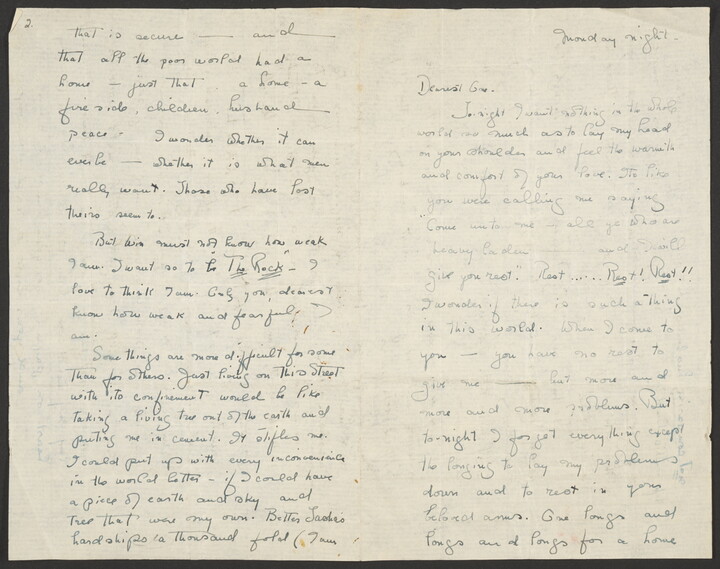 Monday night.
Dearest One.
To-night I want nothing in the whole
world so much as to lay my head
on your shoulder and feel the warmth
and comfort of your love. Its like
you were calling me saying
"Come unto me – all ye who are
heavy laden and I will
give you rest". Rest...... Rest! Rest!!
I wonder if there is such a thing
in this world. When I come to
you — you have no rest to
give me —— but more and
more and more problems. But
to-night I forget everything except
the longing to lay my problems
down and to rest in your
beloved arms. One longs and
longs and longs for a home
2.
that is secure —— and
that all the poor world had a
home — just that. a home – a
fireside, children, husband
peace. I wonder whether it can
ever be — whether it is what men
really want. Those who have lost
theirs seem to.
But must not know how weak
I am. I want so to be "The Rock" – I
love to think I am. Only you, dearest
know how weak and fearful I
am.
Some things are more difficult for some
than for others. Just living on This Street
with its confinement would be like
taking a living tree out of the earth and
putting me in cement. It stifles me.
I could put up with every inconvenience
in the world better – if I could have
a piece of earth and sky and
tree that were my own. Better
hardships a thousand fold (I am